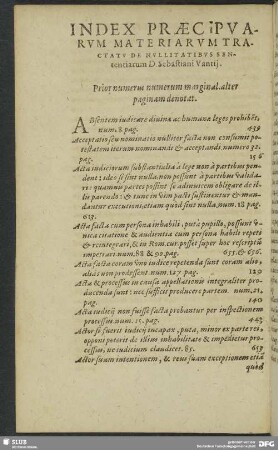 INDEX PRÆCIPVA
RVM MATERIARVM TRA-
CTATV DE NVLLITATIBVS SEN-
tentiarum D. Sebastiani Vantij.
Prior numerus numerum marginal. alter
paginam denotat.
ABsentem iudicare diuinæ ac humanæ leges prohibēt,
num. 8. pag. 439
Acceptatio seu nominatio nulliter facta non consumit po-
testatem iterum nominandi & acceptandi. numero 32.
pag. 156
Acta iudiciorum substantialia à lege non à partibus pen-
dent: ideo si sint nulla non possunt à partibus valida-
ri: quamuis partes possint se adinuicem obligare de il-
lis parendo: & tunc in vim pacti seruabuntur & man-
dantur executioni, etiam quòd sint nulla, num. 18. pag.
613.
Acta facta cum persona inhabili, putà pupillo, possunt v-
nica citatione & auditentia cum persona habili repeti
& reintegrari, & in Rom. cur. posset super hoc rescriptū
impetrari: num. 88. & 90. pag. 635. & 636.
Acta facta coram vno iudice repetenda sunt coram alio,
aliàs non prodessent. num. 127. pag. 129
Acta & processus in causa appellationis integraliter pro-
ducenda sunt: nec sufficit producere partem. num. 21.
pag. 140
Acta iudicij non fuisse facta probantur per inspectionem
processus. num. 15. pag. 443
Actor si fuerit iudicij incapax, puta, minor ex parte rei,
opponi poterit de illius inhabilitate & impedietur pro-
cessus, ne iudicium claudicet. 85. 657
Actor suam intentionem, & reus suam exceptionem etiā
quod
SLUB
DFG